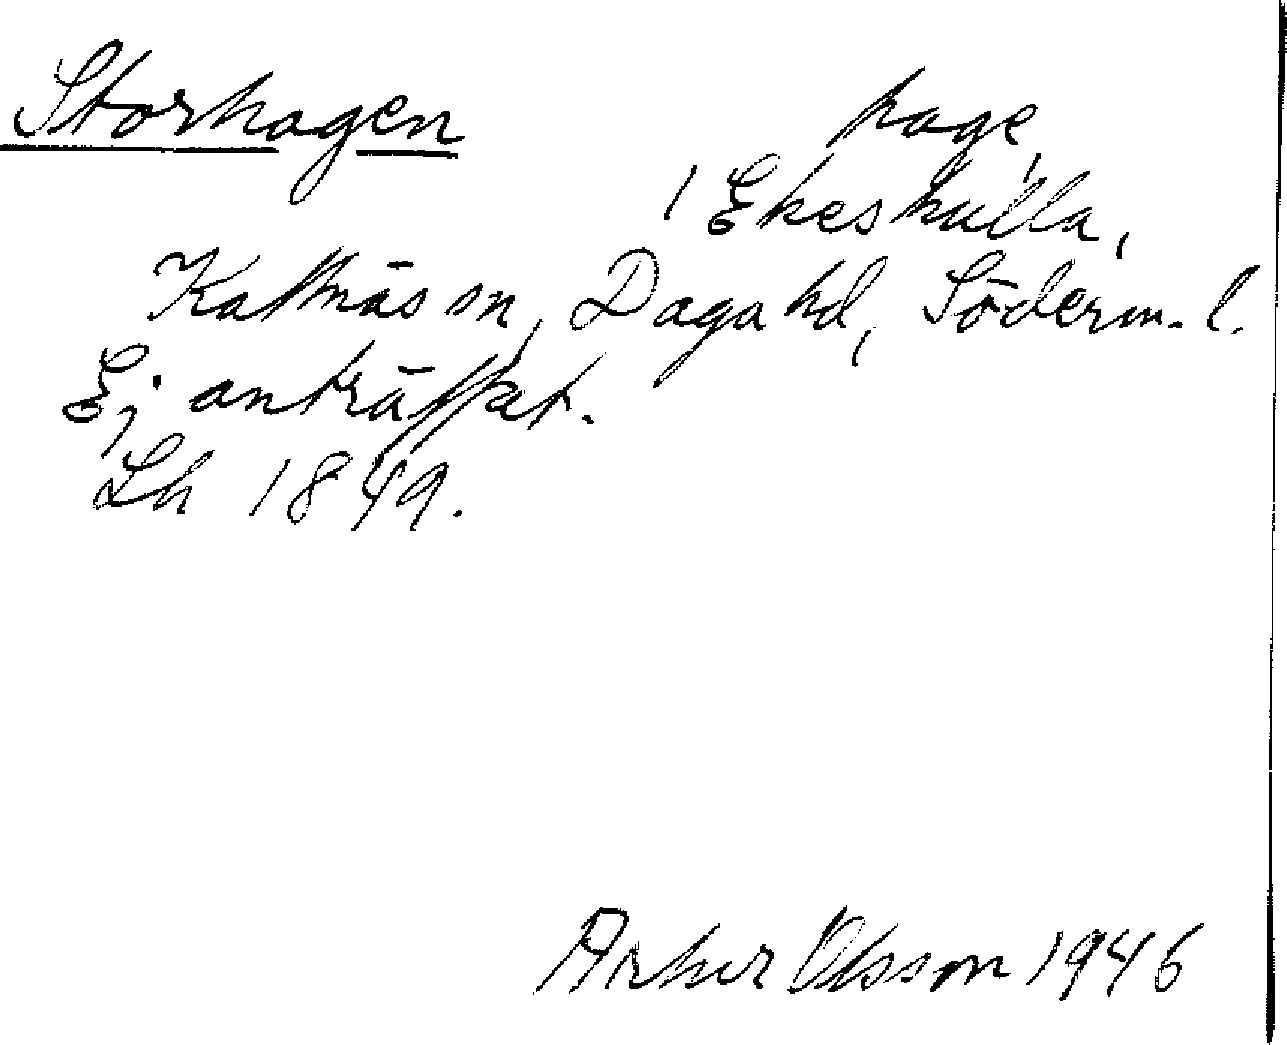 Storhagen hage
1 Ekeskulla,
Kattnäs sn, Daga hd, Söderm. l.
Ej anträffat.
Lh 1849.
Arthur Olsson 1946